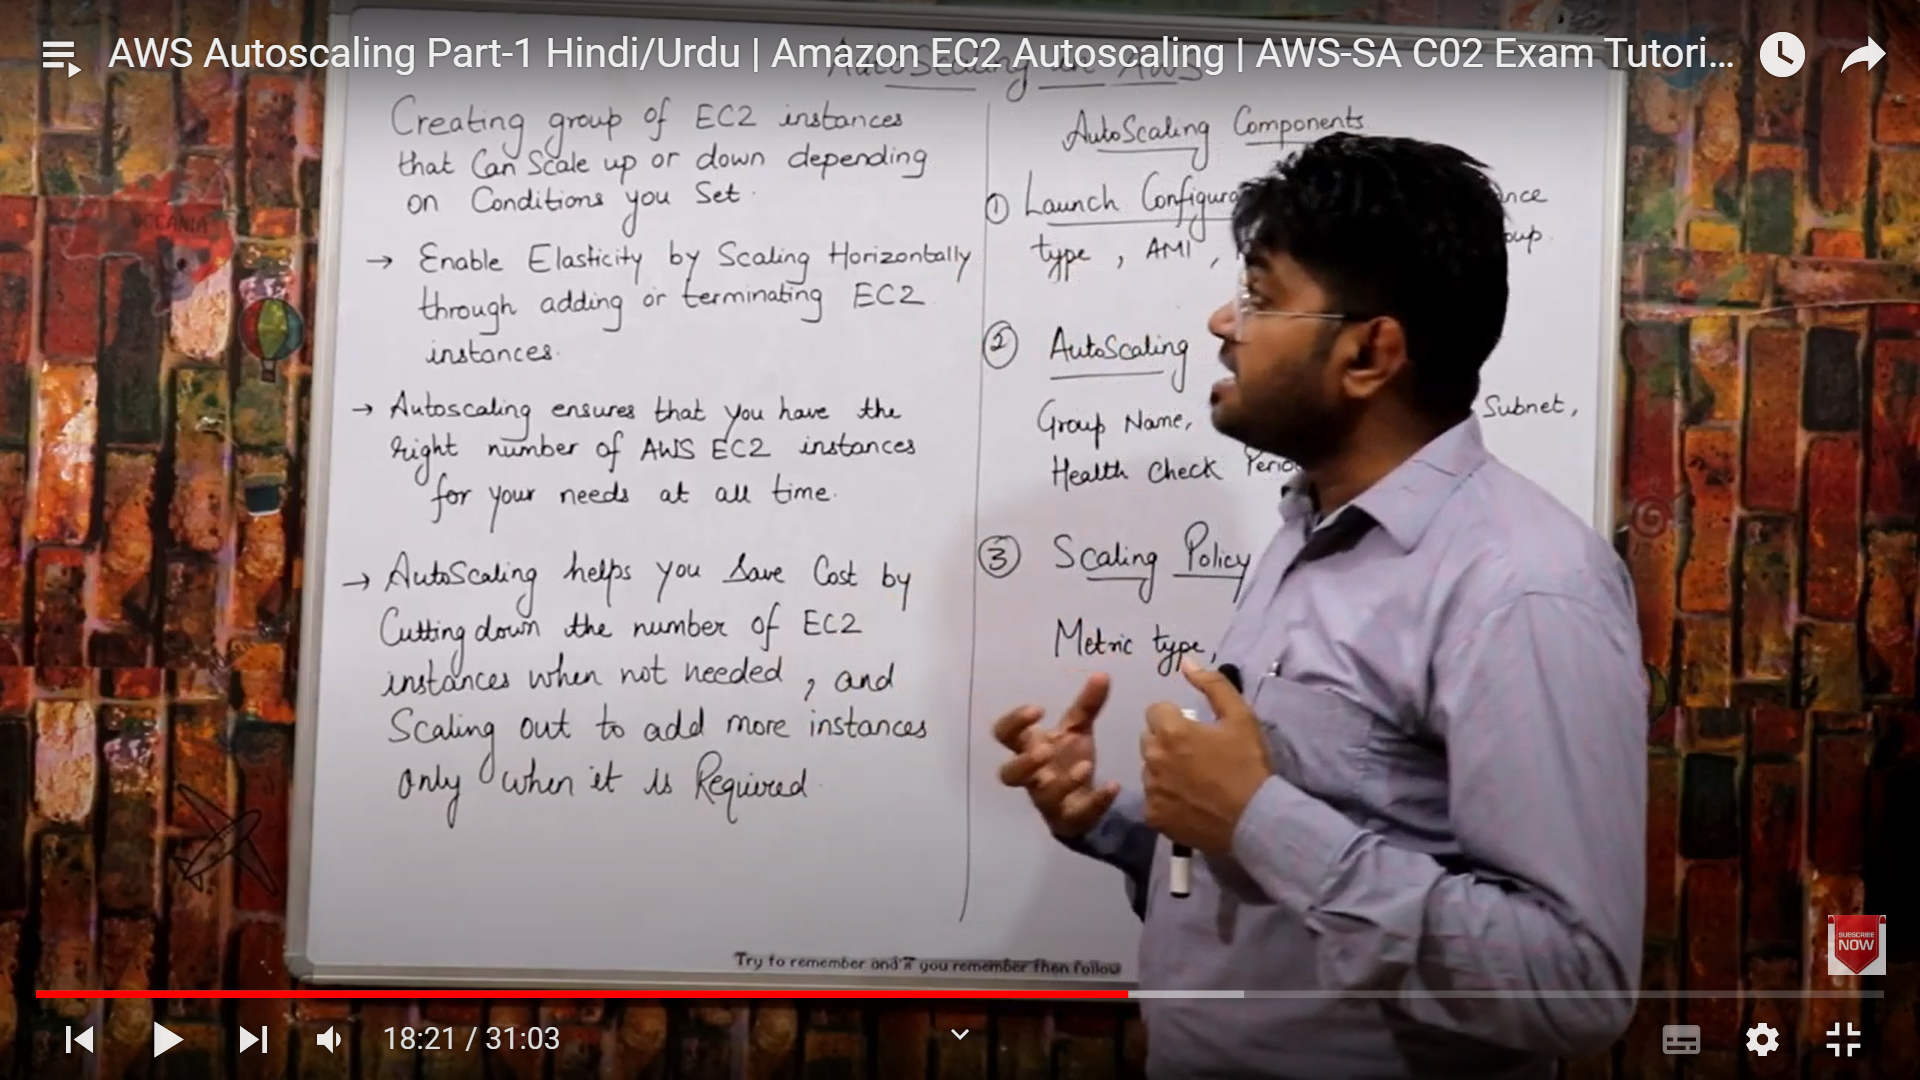 AWS Autoscaling Part-1 Hindi/Urdu | Amazon EC2 Autoscaling | AWS-SA C02 Exam Tutori...
AutoScaling in AWS
Creating group of EC2 instances
that Can Scale up or down depending
on Conditions you Set.
→ Enable Elasticity by Scaling Horizontally
through adding or terminating EC2
instances.
→ Autoscaling ensures that you have the
right number of AWS EC2 instances
for your needs at all time.
→ AutoScaling helps you Save Cost by
Cutting down the number of EC2
instances when not needed, and
Scaling out to add more instances
only when it is Required.
AutoScaling Components
① Launch Configura
type, AMI,
② AutoScaling
Group Name, Subnet,
Health Check Perio
③ Scaling Policy
Metric type,
Try to remember and if you remember then follow
OCEANIA
SUBSCRIBE
NOW
18:21 / 31:03